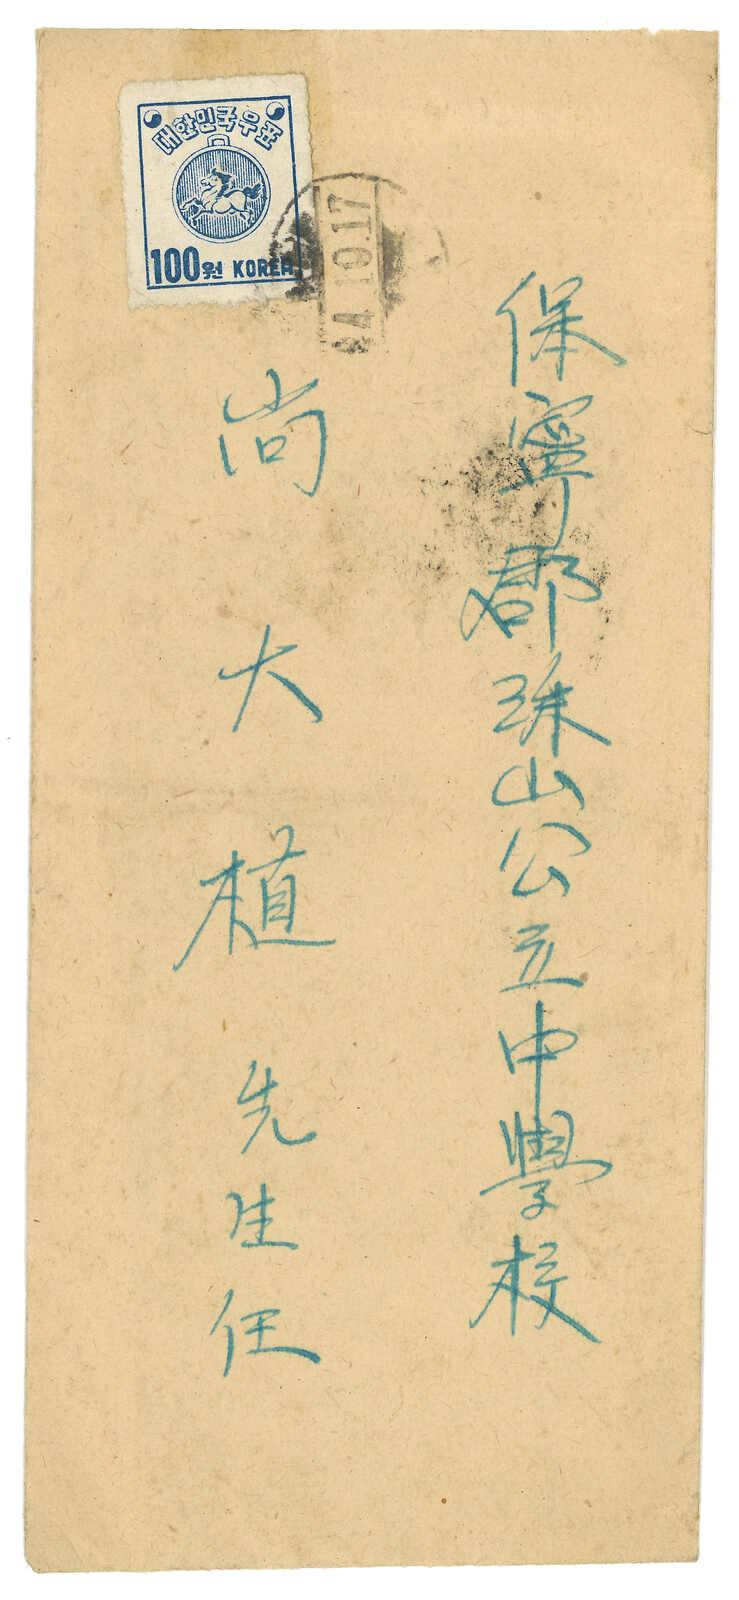 대한민국우표
100원 KOREA
4.10.17
保寧郡珠山公立中學校
尚大植先生任